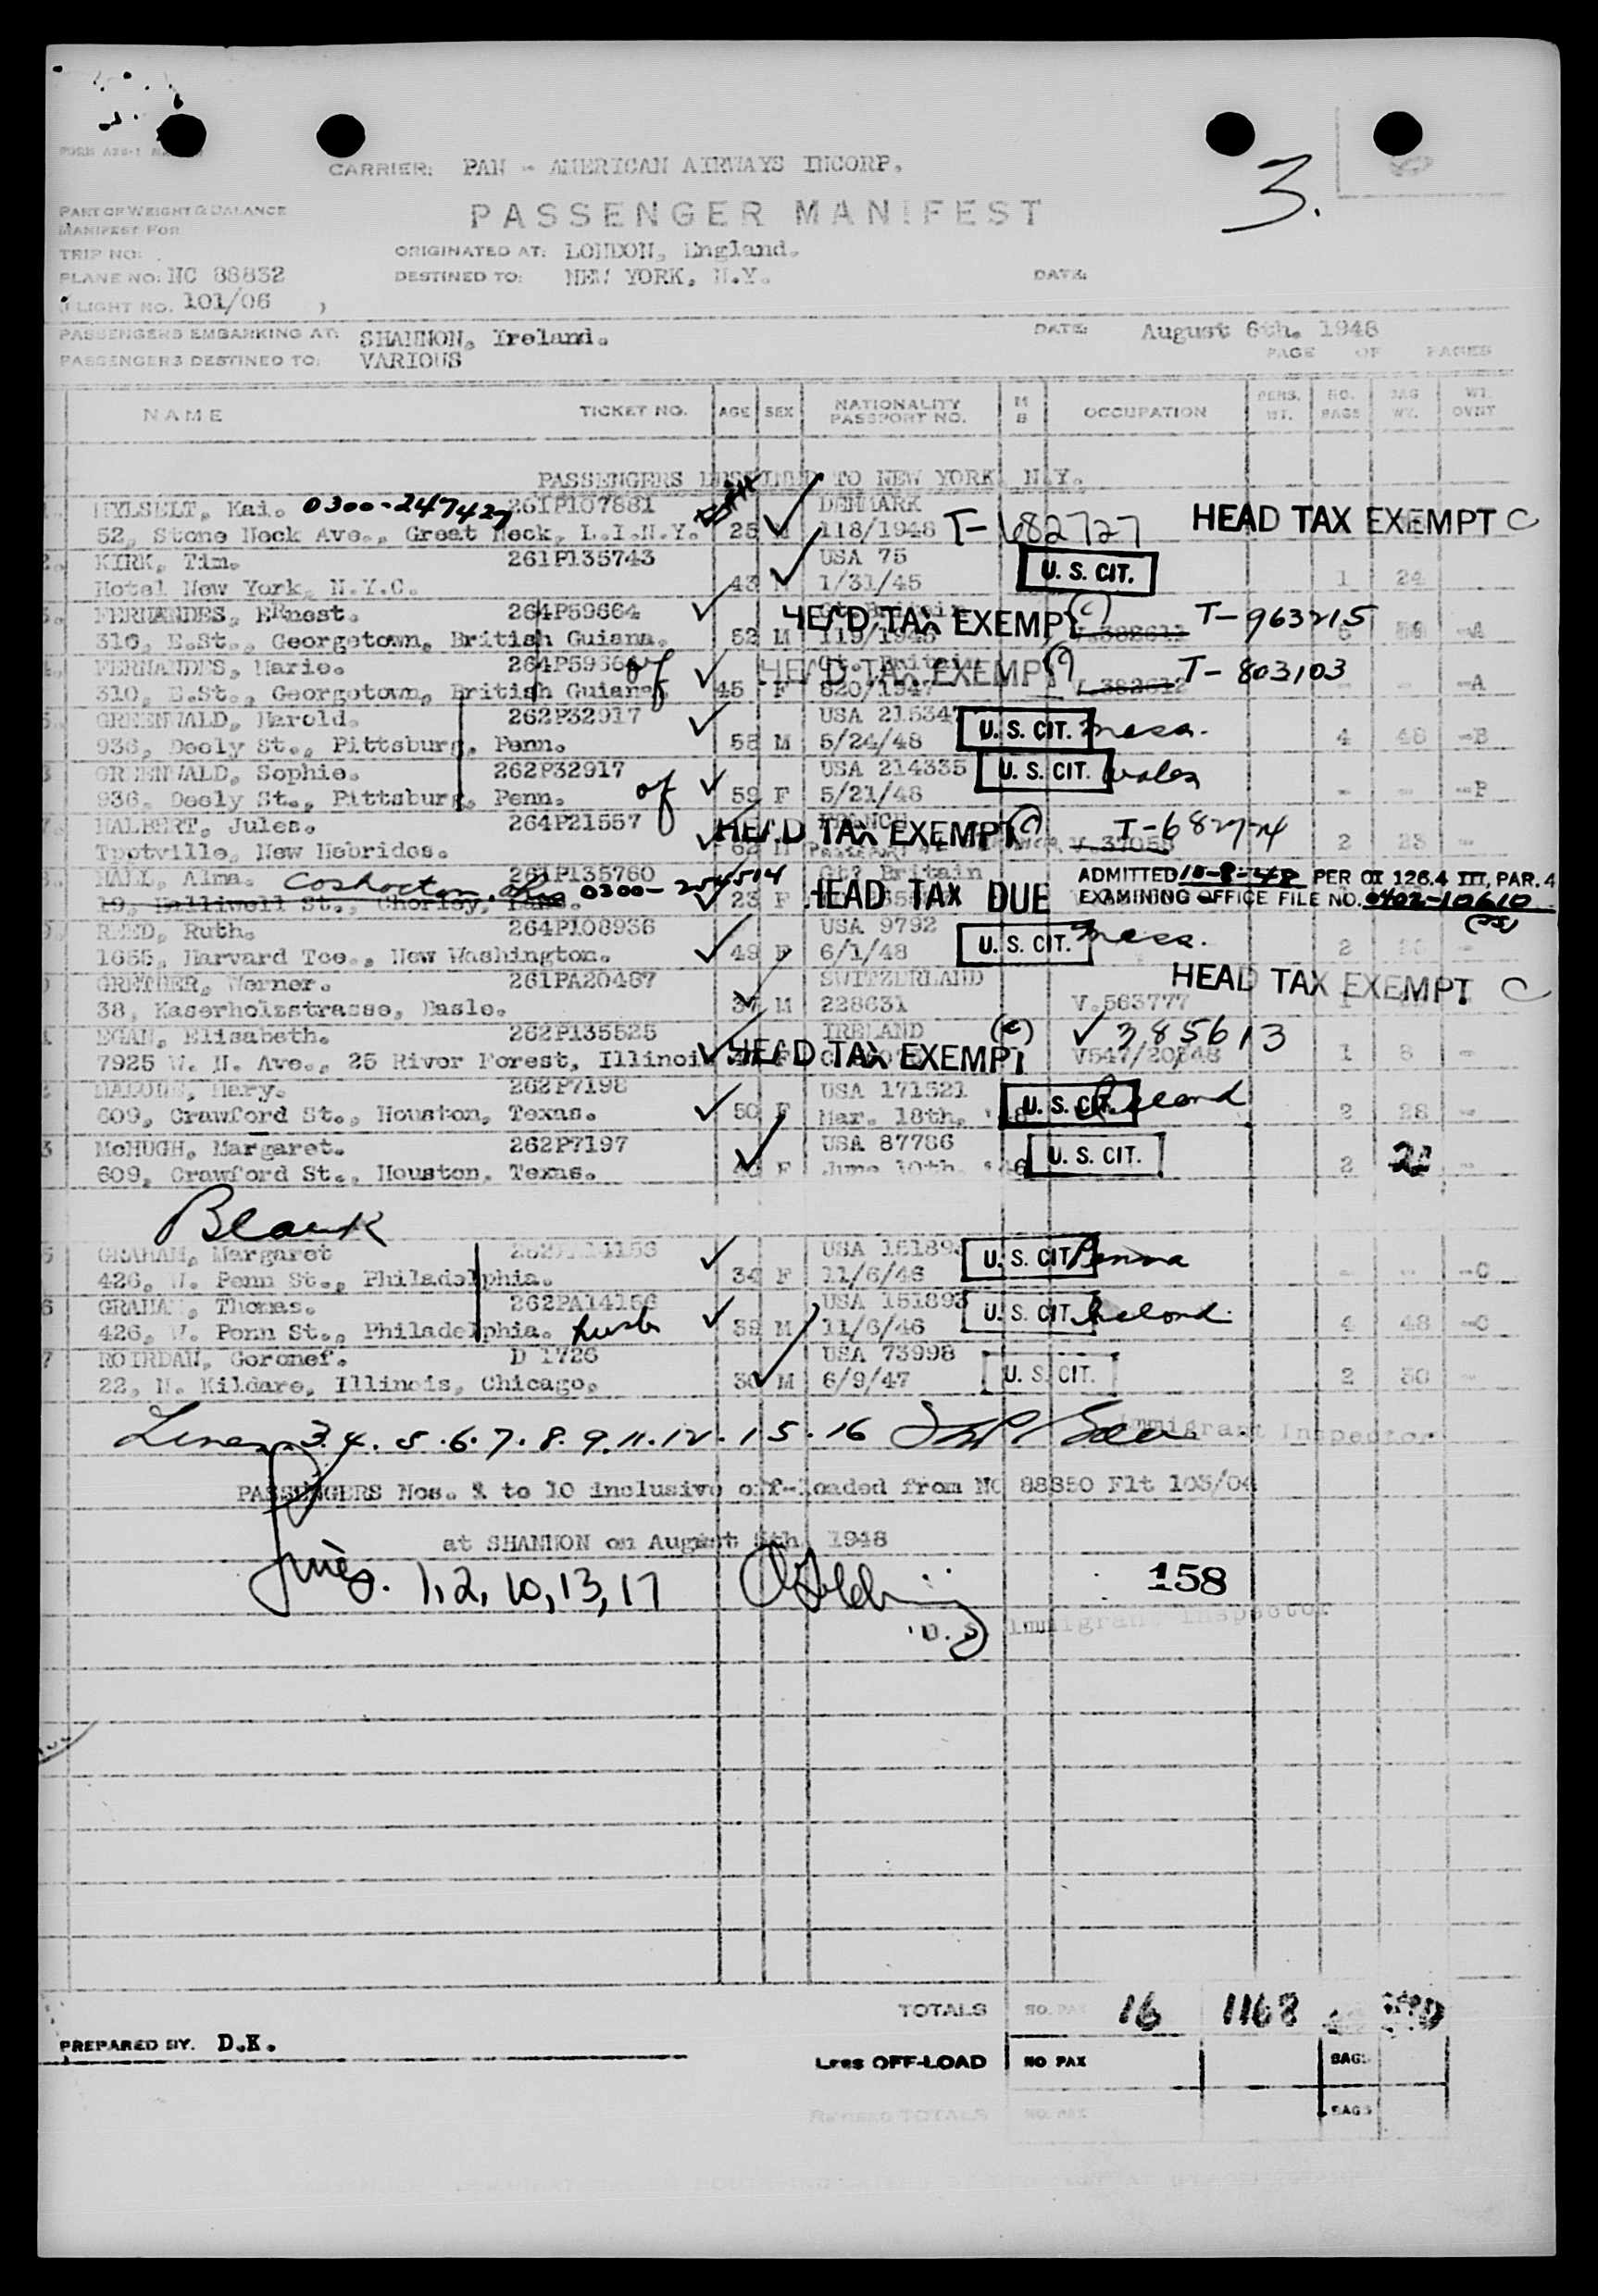 CARRIER: PAN - AMERICAN AIRWAYS INCORP.
3.
PART OF WEIGHT & BALANCE
MANIFEST FOR
PASSENGER MANIFEST
TRIP NO:
ORIGINATED AT: LONDON, England.
PLANE NO: NC 88832
DESTINED TO: NEW YORK, N.Y.
DATE:
FLIGHT NO. 101/06 )
PASSENGERS EMBARKING AT: SHANNON, Ireland.
DATE: August 6th. 1948
PASSENGERS DESTINED TO: VARIOUS
PAGE OF PAGES
NAME TICKET NO. AGE SEX NATIONALITY PASSPORT NO. M S OCCUPATION PERS. WT. NO. BAGS BAG WT. WT. OVNT
PASSENGERS DESTINED TO NEW YORK N.Y.
HYLSELT, Kai. 0300-247427 261P107881 DENMARK
52, Stone Neck Ave., Great Neck, L.I.N.Y. 25 M 118/1948 T-682727 HEAD TAX EXEMPT C
KIRK, Tim. 261P135743 USA 75
Hotel New York, N.Y.C. 43 M 1/31/45 U. S. CIT. 1 24
FERNANDES, ERnest. 264P59664 Gt. Britain
310, E.St., Georgetown, British Guiana. 52 M 119/1948 HEAD TAX EXEMPT (c) V.382611 T-963215
FERNANDES, Marie. Gt. Britain
310, E.St., Georgetown, British Guiana. of 45 F 820/1947 HEAD TAX EXEMPT V.382612 T-803103 - - -A
GREENWALD, Harold. 262P32917 USA 215347
936, Deely St., Pittsburg, Penn. 58 M 5/24/48 U. S. CIT. Mass. 4 48 -B
GREENWALD, Sophie. 262P32917 USA 214335
936, Deely St., Pittsburg, Penn. of 59 F 5/21/48 U. S. CIT. Wales - - -B
HALBERT, Jules. 264P21557 FRANCE
New Hebrides. 62 M HEAD TAX EXEMPT (c) V.37058 T-682724 2 23 -
HALL, Alma. Coshocton, Ohio 261P135760 Gt? Britain
19, Halliwell St., Chorley, 0300-254514 23 F HEAD TAX DUE ADMITTED 10-8-48 PER OI 126.4 III, PAR. 4
EXAMINING OFFICE FILE NO. 0402-10610
REED, Ruth. 264P108936 USA 9792
1655, Harvard Tce., New Washington. 49 F 6/1/48 U. S. CIT. Mass. 2
GRETHER, Werner. 261PA20467 SWITZERLAND
38, Kaserholzstrasse, Basle. 37 M 228631 V.563777 HEAD TAX EXEMPT C
EGAN, Elisabeth. 262P135525 IRELAND (c) V 385613
7925 W. N. Ave., 25 River Forest, Illinois HEAD TAX EXEMPT 1 8 -
MALONE, Mary. 262P7198 USA 171521
609, Crawford St., Houston, Texas. 50 F Mar. 18th, '48 U. S. CIT. Ireland 2 28 -
McHUGH, Margaret. 262P7197 USA 87786
609, Crawford St., Houston, Texas. F June 10th. '46 U. S. CIT. 2 22 -
Blank
GRAHAM, Margaret USA 151893
426, W. Penn St., Philadelphia. 34 F 11/6/46 U. S. CIT. Penna - - -C
GRAHAM, Thomas. 262PA14156 USA 151893
426, W. Penn St., Philadelphia. husb 39 M 11/6/46 U. S. CIT. Ireland. 4 48 -C
ROIRDAN, Goronef. D 1726 USA 73998
22, N. Kildare, Illinois, Chicago. 30 M 6/9/47 U. S. CIT. 2 50 -
Lines 3. 4. 5. 6. 7. 8. 9. 11. 12. 15. 16 Immigrant Inspector
PASSENGERS Nos. to 10 inclusive off-loaded from NC 88850 Flt 103/04
at SHANNON on August 5th. 1948
Lines. 1, 2, 10, 13, 17 158
U. S. Immigrant Inspector
TOTALS NO. PAX 16 1168
PREPARED BY. D.K.
Less OFF-LOAD NO PAX BAGS
Revised TOTALS NO. PAX BAGS